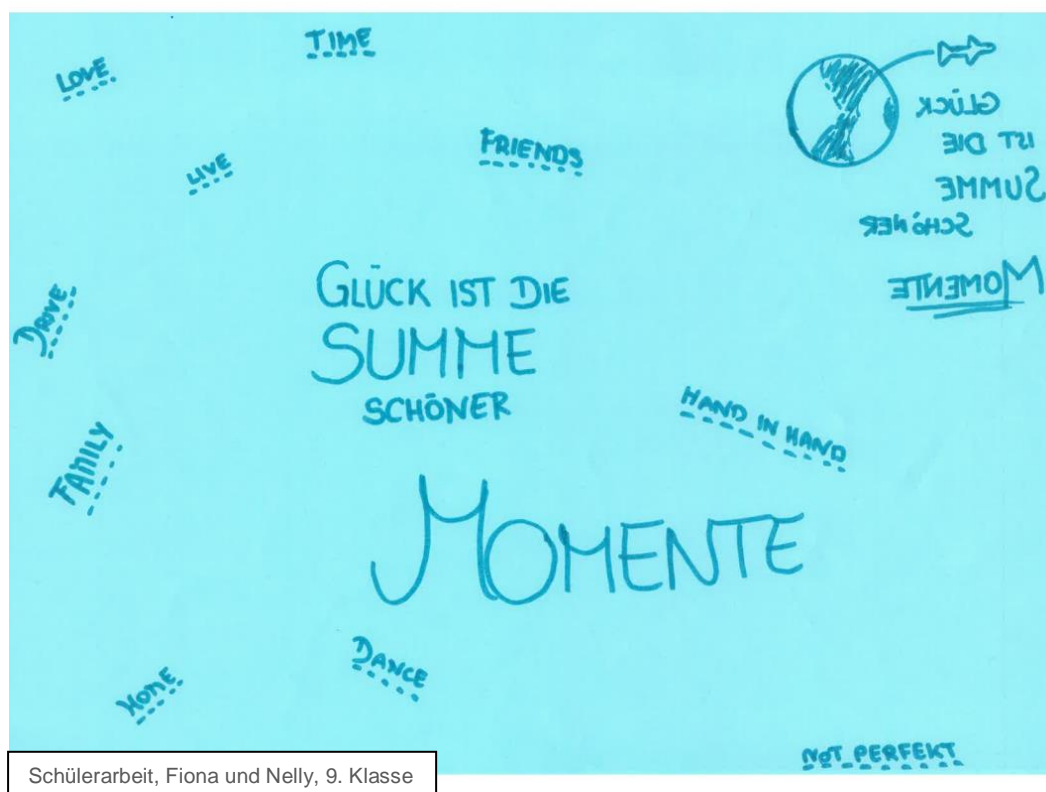 TIME
LOVE.
LIVE
FRIENDS
GLÜCK
IST DIE
SUMME
SCHÖNER
MOMENTE
DRIVE
GLÜCK IST DIE
SUMME
SCHÖNER
MOMENTE
HAND IN HAND
FAMILY
DANCE
HOME
NOT PERFEKT
Schülerarbeit, Fiona und Nelly, 9. Klasse